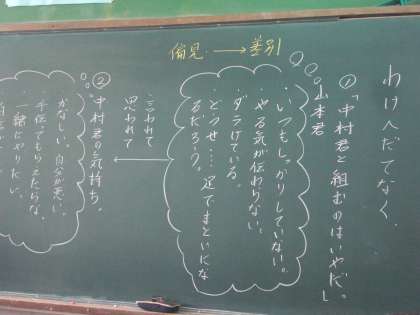 偏見→差別
わけへだてなく
①「中村君と組むのはいやだ。」
山本君
・いつもしっかりしていない。
・やる気が伝わらない。
・ダラけている。
・どうせ……足でまといにな
るだろう。
言われて
思われて
②中村君の気持ち。
かなしい。自分が悪い。
手伝ってもらえたらな
一緒にやりたい。